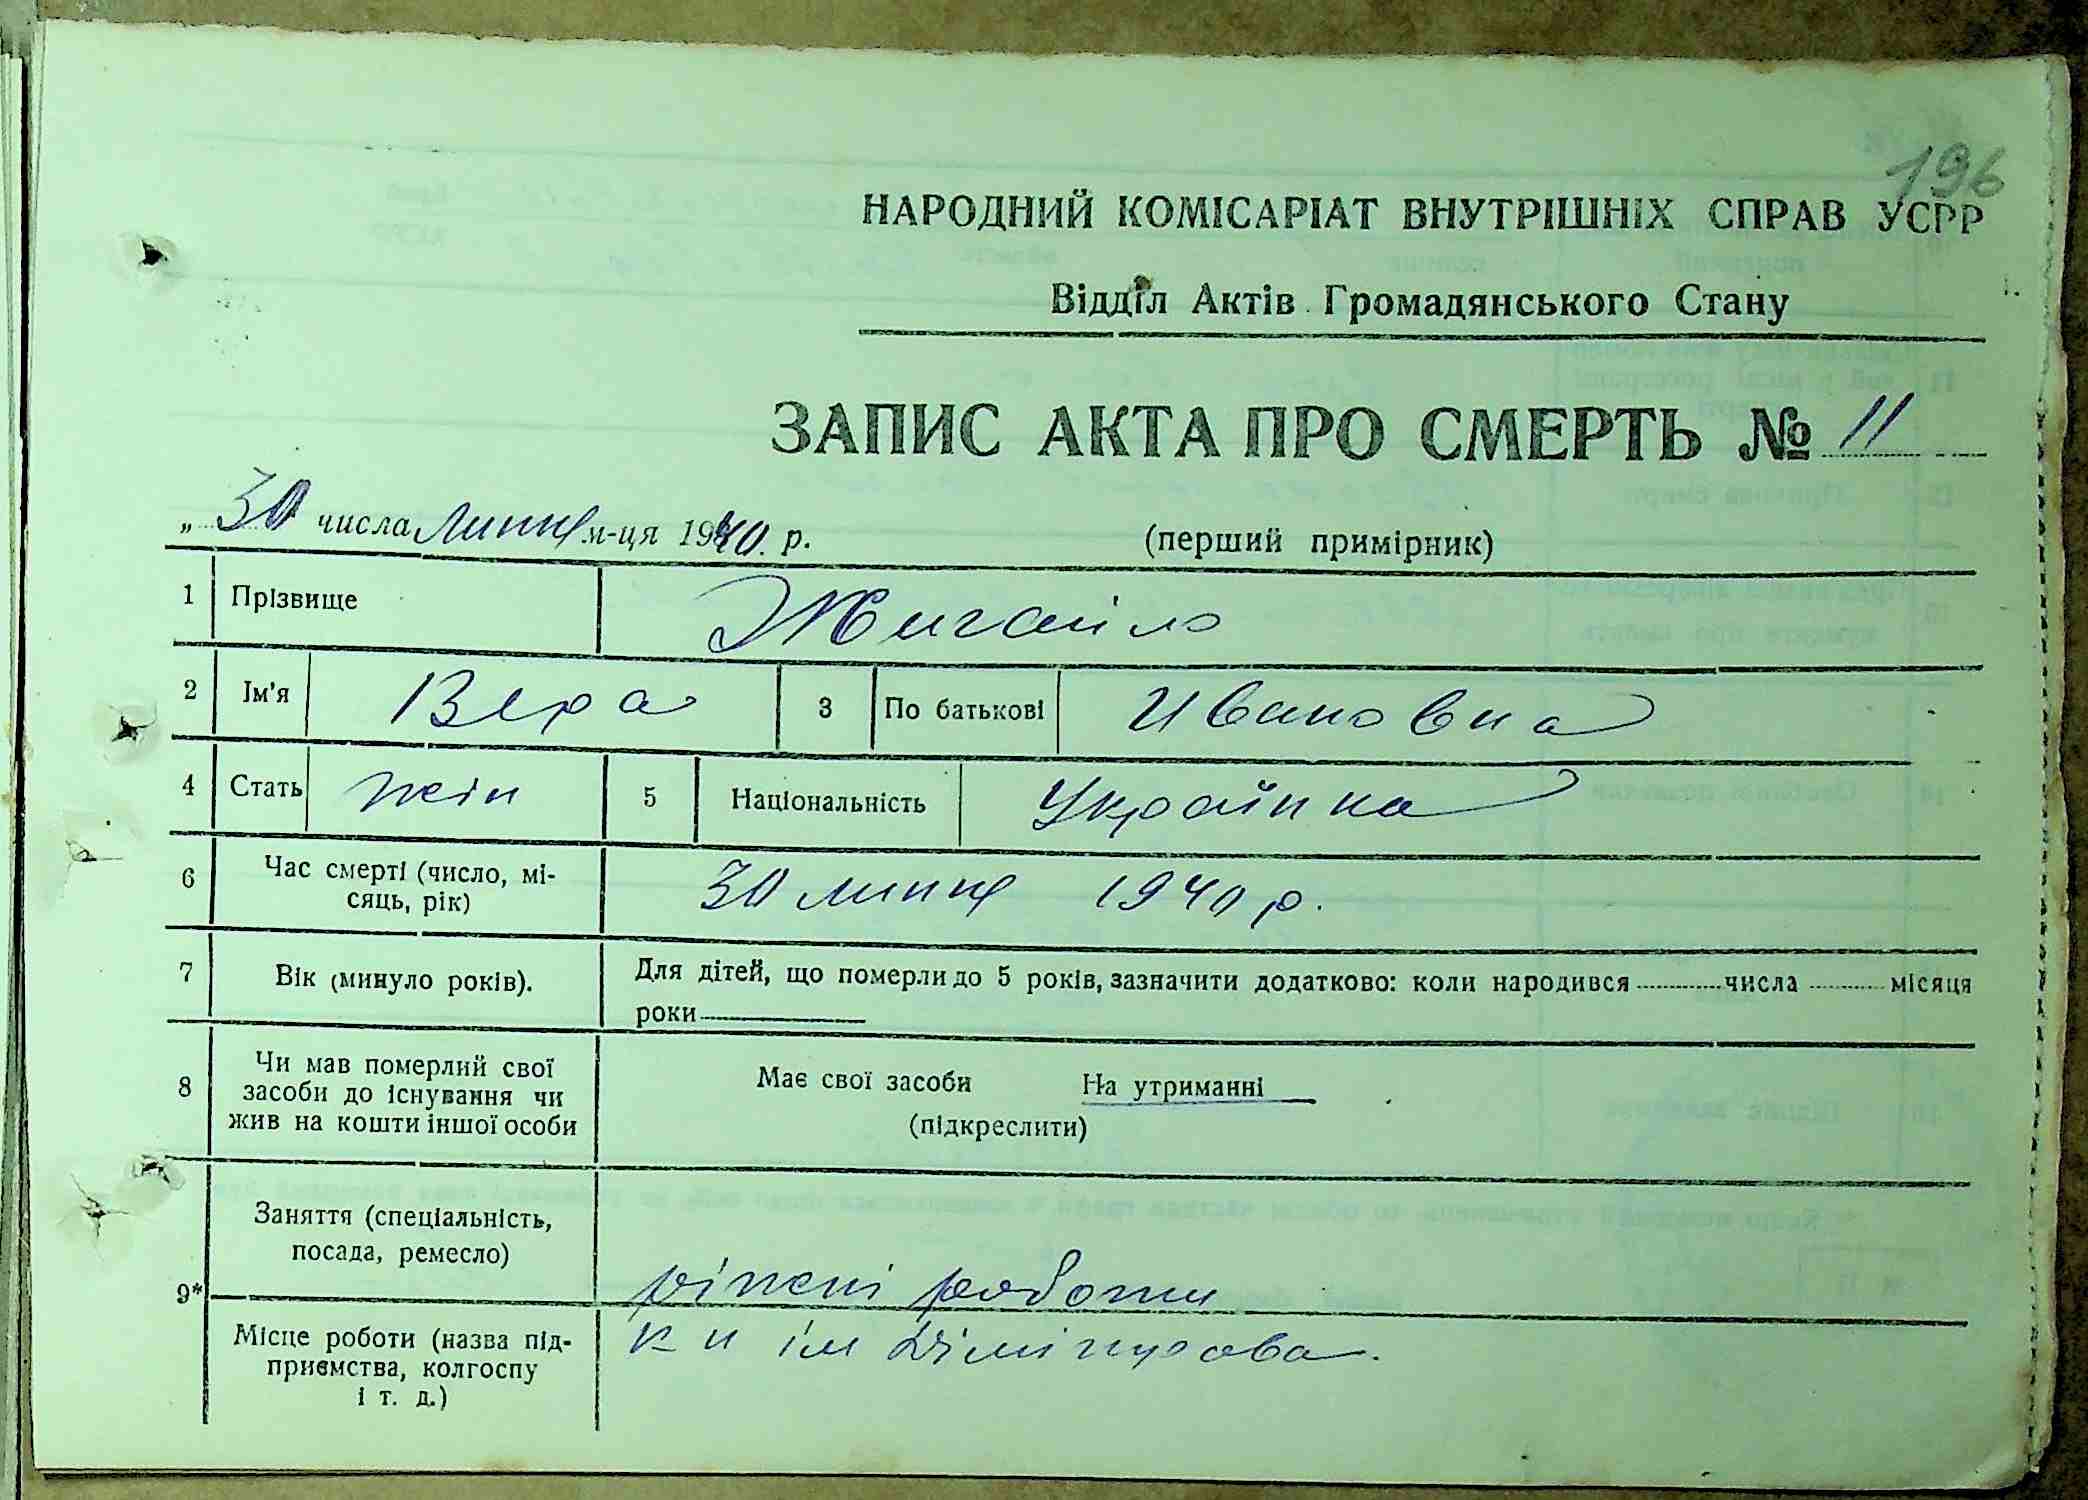 196
НАРОДНИЙ КОМІСАРІАТ ВНУТРІШНІХ СПРАВ УСРР
Відділ Актів Громадянського Стану
ЗАПИС АКТА ПРО СМЕРТЬ № 11
„30 числа липця м-ця 1940. р. (перший примірник)
1 Прізвище Жигайло
2 Ім'я Вера 3 По батькові Ивановна
4 Стать жін 5 Національність Українка
6 Час смерті (число, мі-
сяць, рік) 30 липця 1940 р.
7 Вік (минуло років). Для дітей, що померли до 5 років, зазначити додатково: коли народився числа місяця
роки
8 Чи мав померлий свої
засоби до існування чи
жив на кошти іншої особи
Має свої засоби На утриманні
(підкреслити)
9* Заняття (спеціальність,
посада, ремесло) ріжні роботи
Місце роботи (назва під-
приємства, колгоспу
і т. д.)
к и ім Дімітрова.